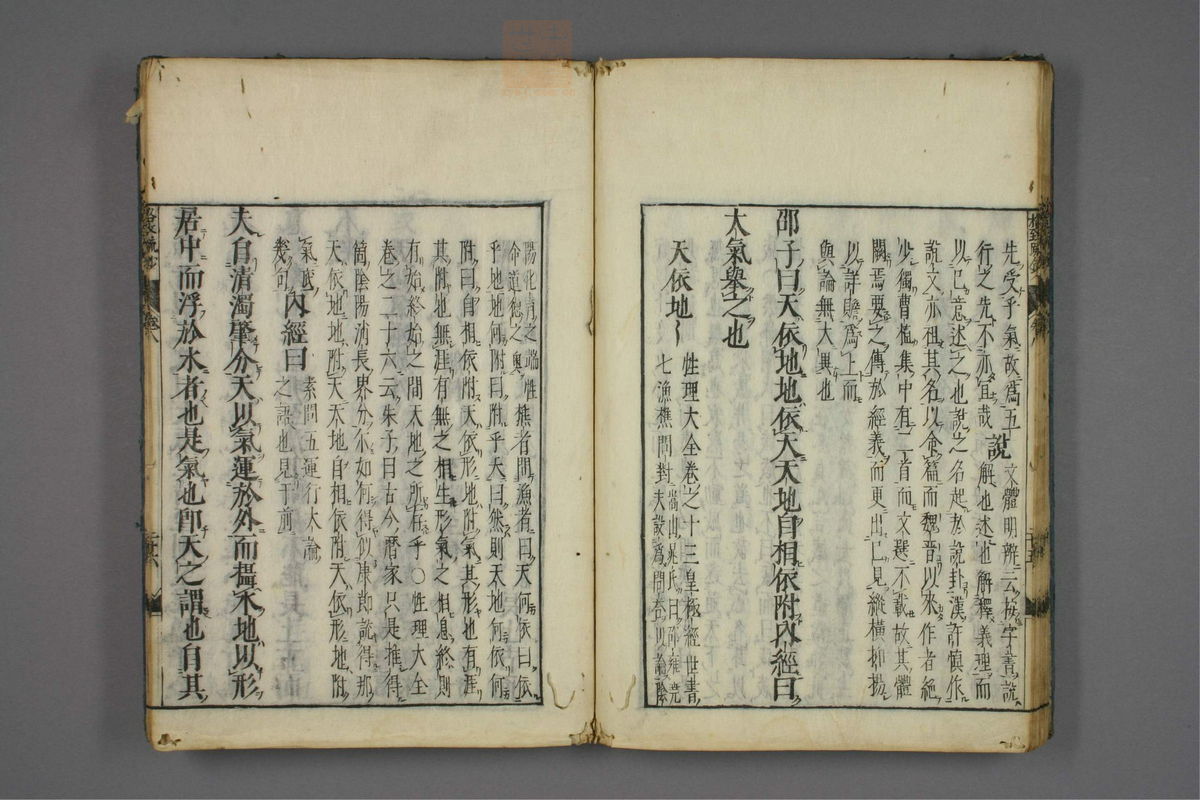 先受乎氣故爲五
行之先不亦宜哉
說
文體明辨云按字書説
解也述也解釋義理而
以已意述之也說之名起於說卦漢許慎作
說文亦祖其名以命篇而魏晉以來作者絶
少獨曹植集中有二首而文選不載故其體
闕焉要之傳於經義而更出已見縱橫抑揚
以詳贍爲上而
與論無大異也
邵子曰天依地地依天天地自相依附內經曰
大氣擧之也
天依地〜
性理大全卷之十三皇極經世書
七漁樵問對
嵩山晁氏曰邵雍堯
夫設爲問荅以論陰
陽化育之端性
命道德之奧
樵者問漁者曰天何依曰依
乎地地何附曰附乎天曰然則天地何依何
附曰自相依附天依形地附氣其形也有涯
其氣也無涯有無之相生形氣之相息終則
有始終始之間天地之所存乎○性理大全
卷之二十六云朱子曰古今曆家只是推得
箇陰陽消長界分尒如何得似康節說得那
天依地地附天天地自相依附天依形地附
氣底
幾句
內經曰
素問五運行大論
之語也見于前
夫自清濁肇分天以氣運於外而攝水地以形
居中而浮於水者也是氣也卽天之謂也自其